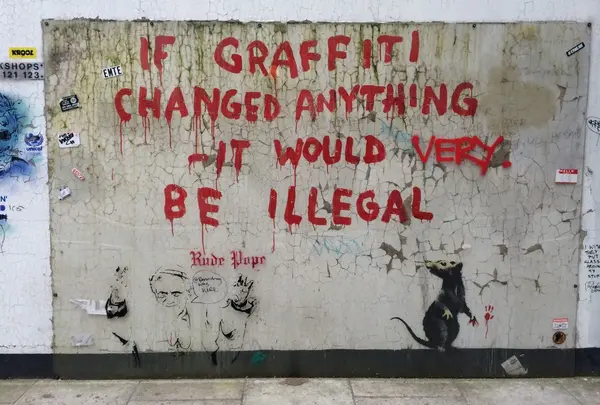 KROOZ
KSHOPS
121 123
FMTE
IF GRAFFITI
CHANGED ANYTHING
-IT WOULD VERY.
BE ILLEGAL
Rude Pope